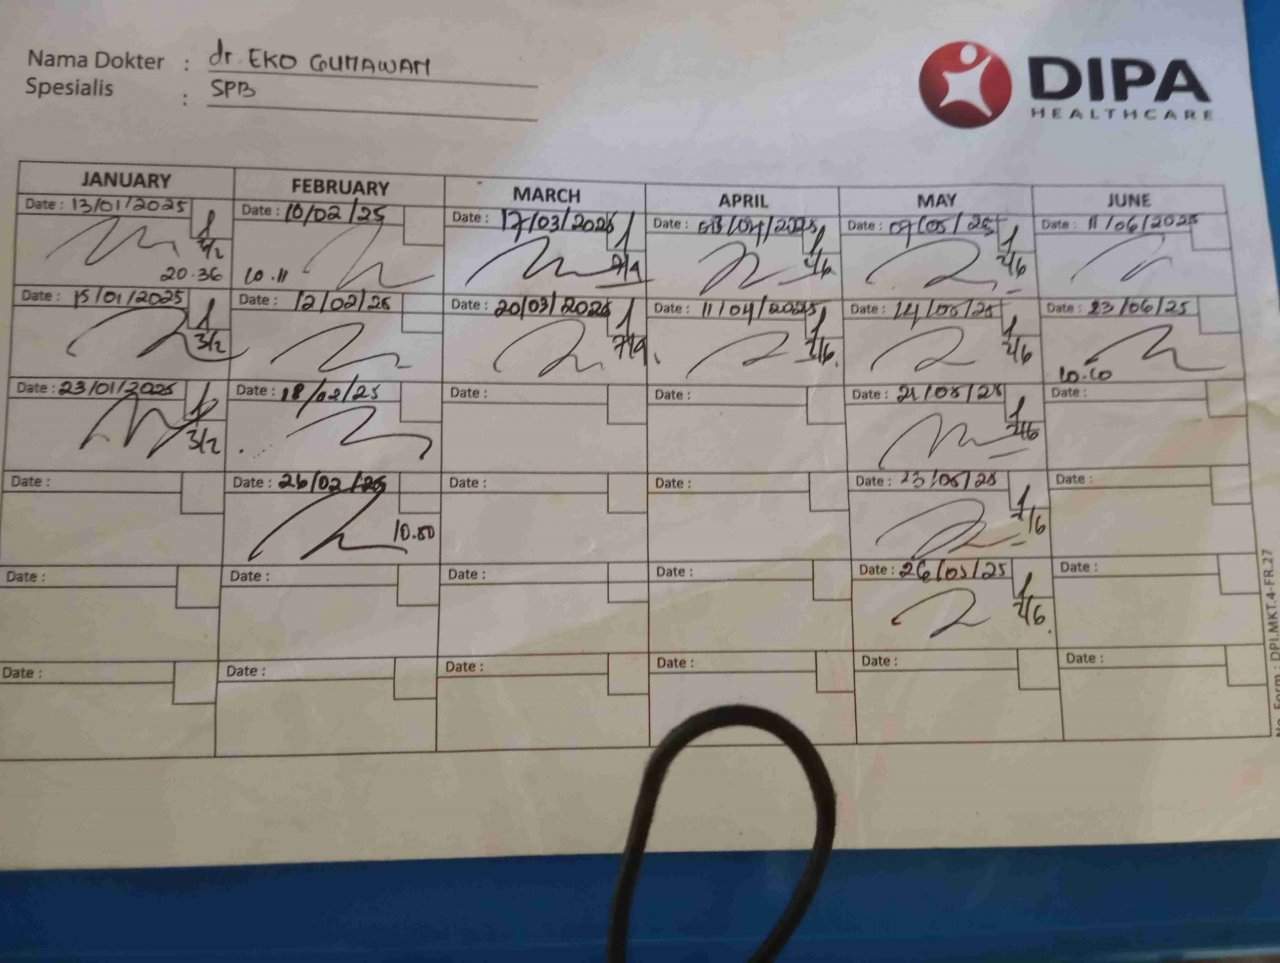 Nama Dokter : dr. EKO GUNAWAN
Spesialis : SPB
DIPA
HEALTHCARE
JANUARY FEBRUARY MARCH APRIL MAY JUNE
Date : 13/01/2025 Date : 10/02/25 Date : 17/03/2025 Date : 03/04/2025 Date : 07/05/25 Date : 11/06/2025
3/2 7/4 2/6 2/6
20.36 10.11
Date : 15/01/2025 Date : 12/02/25 Date : 20/03/2025 Date : 11/04/2025 Date : 14/05/25 Date : 23/06/25
3/2 7/4 2/6 2/6
10.10
Date : 23/01/2025 Date : 18/02/25 Date : Date : Date : 21/05/25 Date :
3/2 2/6
Date : Date : 26/02/25 Date : Date : Date : 23/05/25 Date :
10.50 2/6
Date : Date : Date : Date : Date : 26/05/25 Date :
2/6
Date : Date : Date : Date : Date : Date :
No. Form : DPI.MKT.4-FR.27